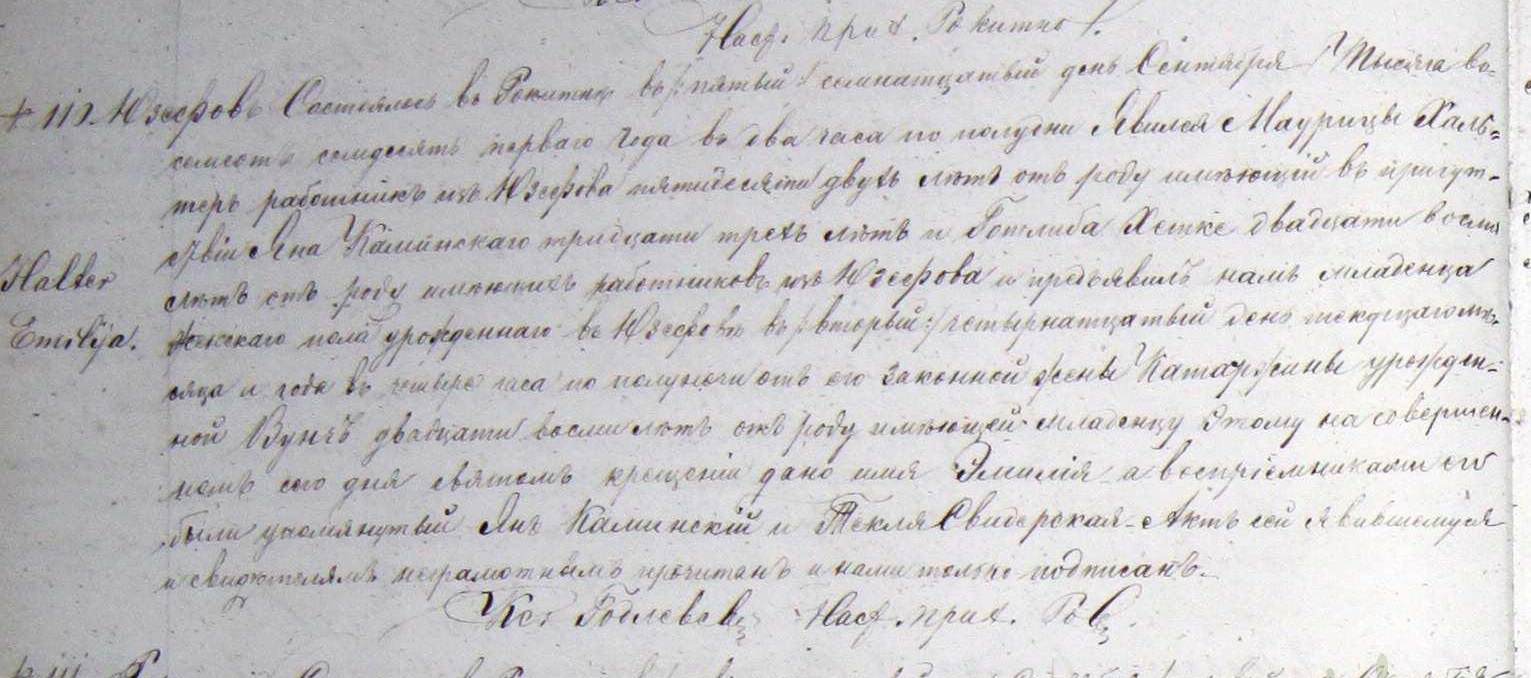 Наст. прих. Рокитно
+ 110. Юзефовъ Состоялось въ Рокитнѣ въ /: пятый :/ семнатцатый день Сентября Тысяча во=
семсотъ семдесятъ перваго года въ два часа по полудни Явился Маурицы Халь=
теръ работникъ изъ Юзефова пятидесяти двухъ лѣтъ отъ роду имѣющій въ присут-
ствіи Яна Каминскаго тридцати трехъ лѣтъ и Готлиба Хетке двадцати восми
лѣтъ отъ роду имѣющихъ работниковъ изъ Юзефова и предъявилъ намъ младенца
Halter
женскаго пола урожденнаго въ Юзефовѣ въ /: вторый :/ четырнатцатый день текущаго мѣ-
Emilija.
сяца и года въ четыре часа по полуночи отъ его законной жены Катаржины урожден=
ной Вунчъ двадцати восми лѣтъ отъ роду имѣющей младенцу этому на совершен=
номъ сего дня святомъ крещеніи дано имя Эмилія а воспріемниками его
были упомянутый Янъ Каминскій и Текля Свидерская - Актъ сей явившемуся
и свидѣтелямъ неграмотнымъ прочитанъ и нами только подписанъ.
Кс. Наст. прих.